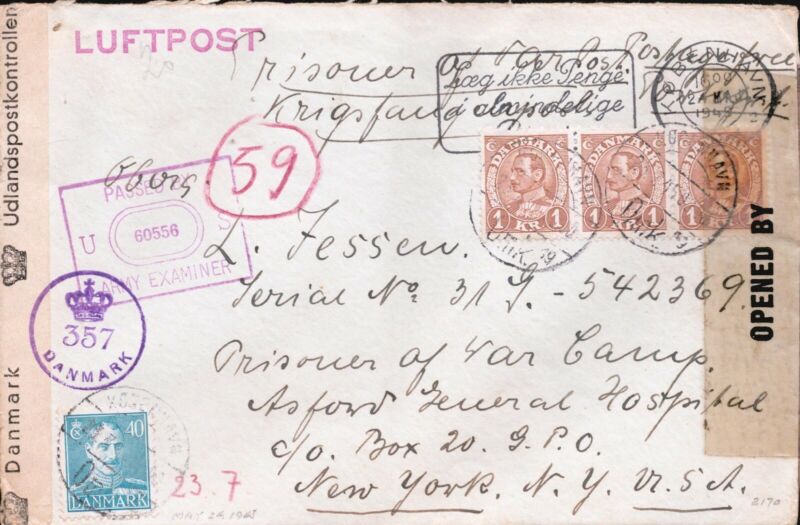 Danmark
Udlandspostkontrollen
LUFTPOST
Prisoner of War Post
Læg ikke Penge
i almindelige
KØBENHAVN
1945
Krigsfange
59
PASSED
60556
U S
ARMY EXAMINER
357
DANMARK
DANMARK
1 KR 1
DANMARK
1 KR 1
DANMARK
1 KR 1
OPENED BY
L. Jessen.
Serial No: 31 G. - 542369.
Prisoner of War Camp.
Asford General Hospital
c/o. Box 20. G. P. O.
New York. N. Y. U. S. A.
40
DANMARK
23.7
MAY 24 1945
2170